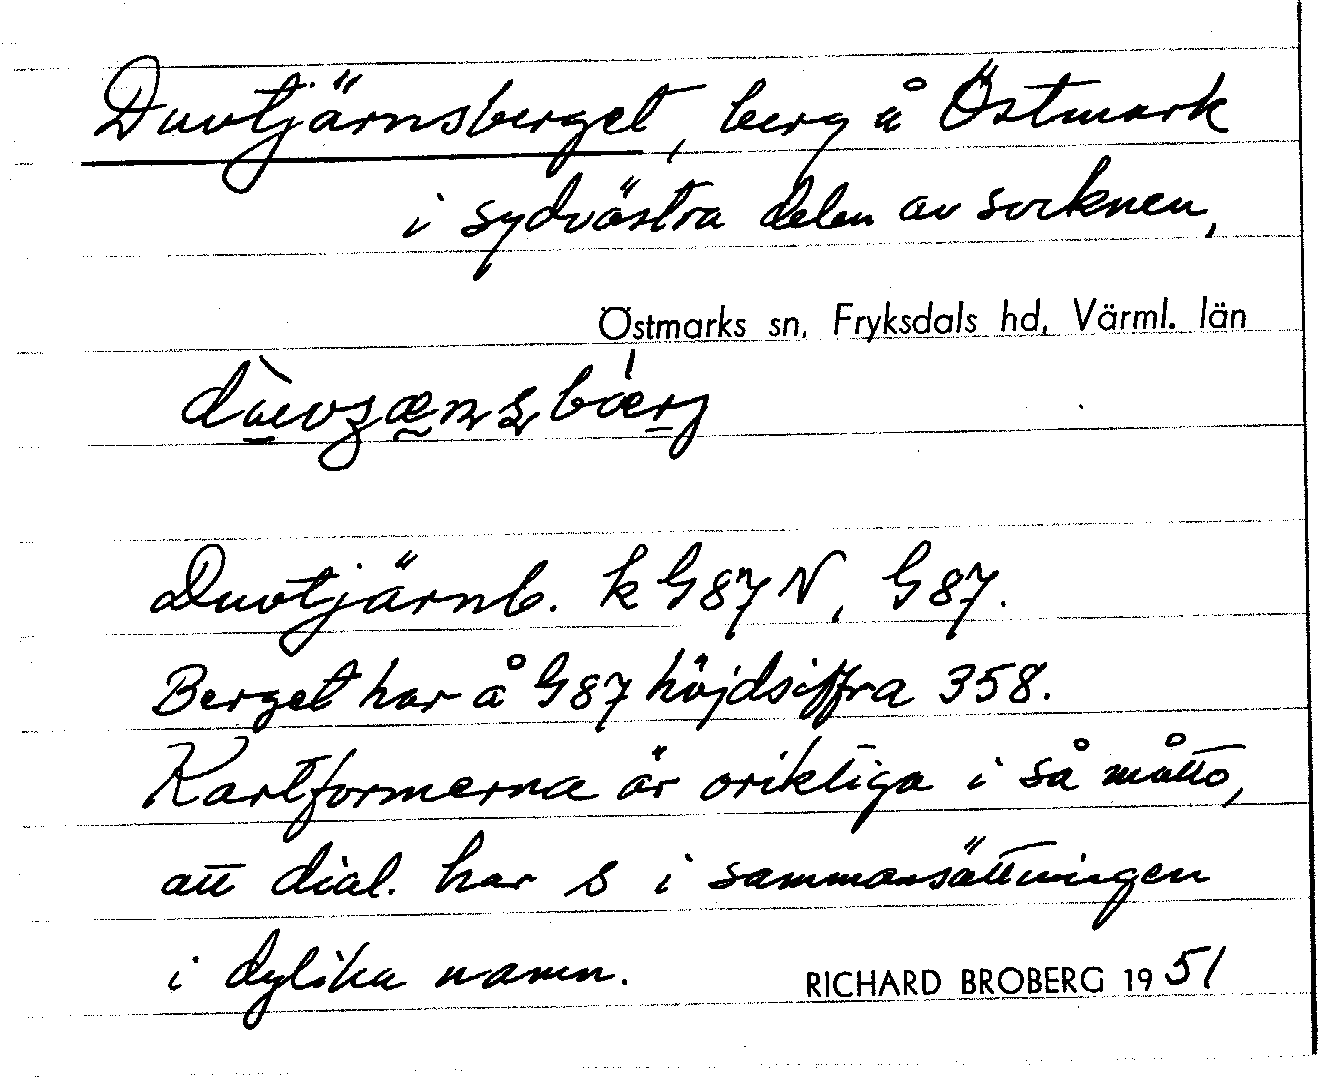 Duvtjärnsberget, berg å Östmark
i sydvästra delen av socknen,
Östmarks sn, Fryksdals hd, Värml. län
Duvtjärnb. k G87 N, G87.
Berget har å G87 höjdsiffra 358.
Kartformerna är oriktiga i så måtto,
att dial. har s i sammansättningen
i dylika namn.
RICHARD BROBERG 1951